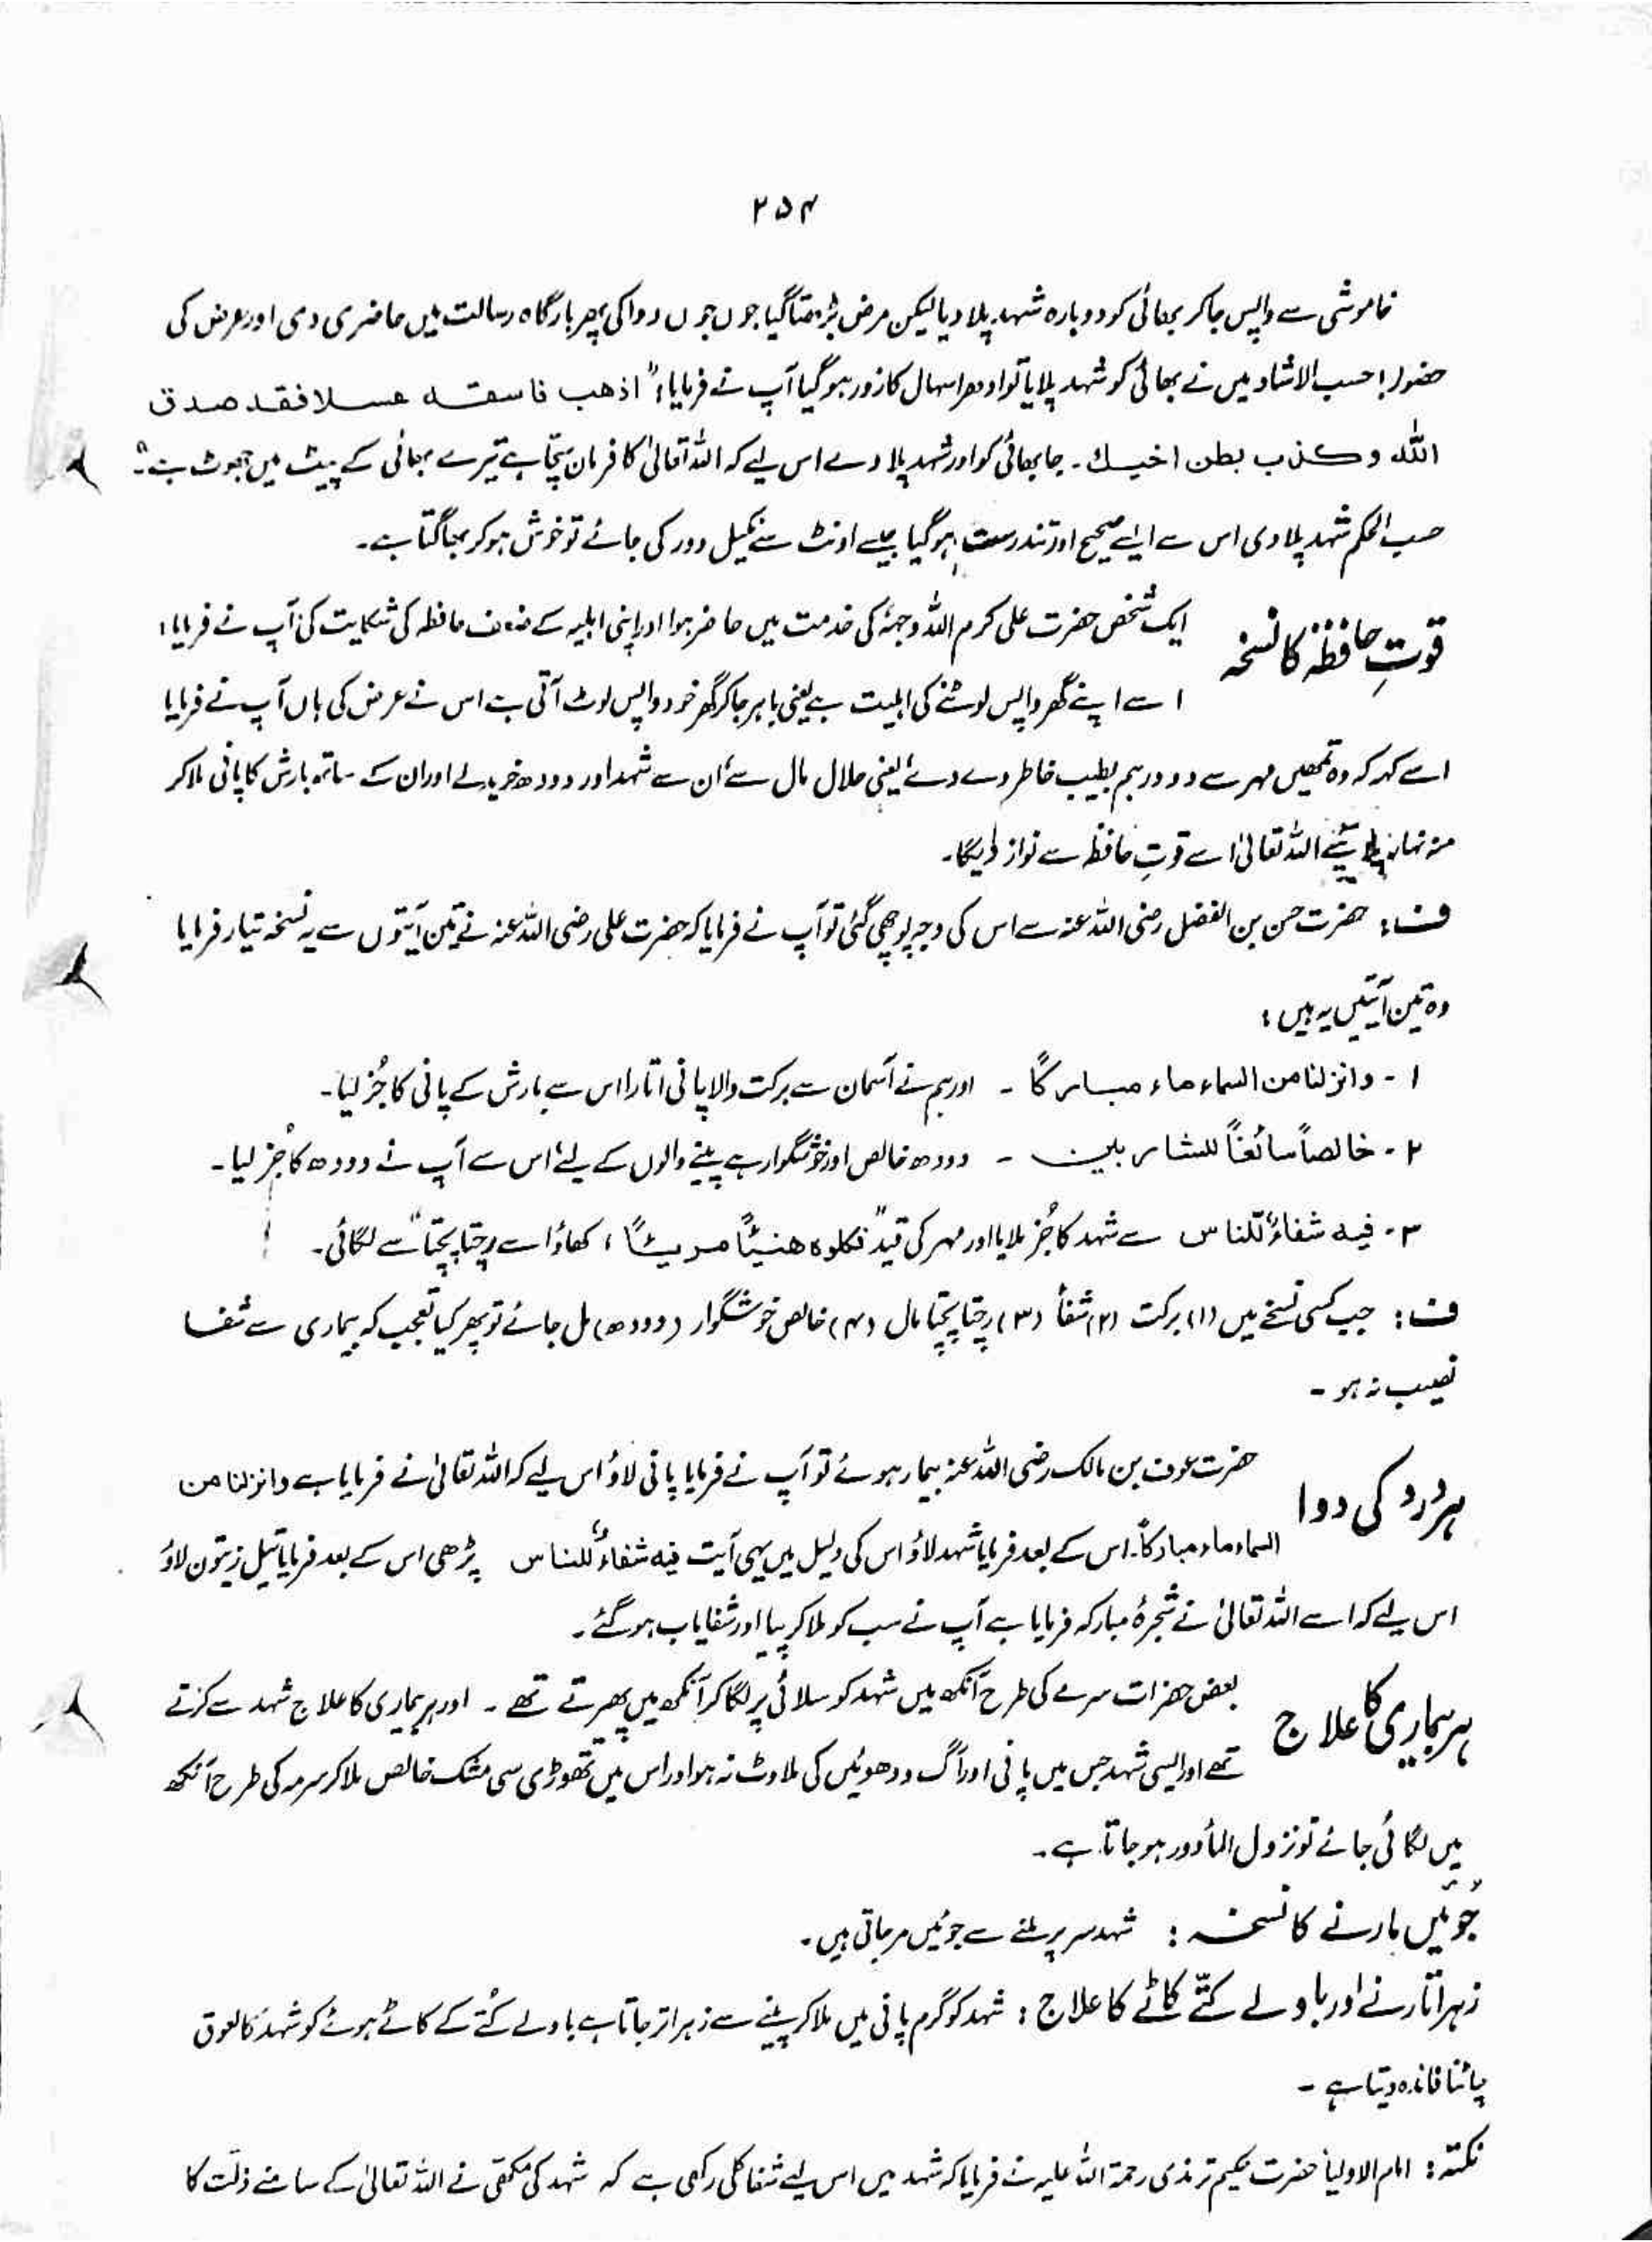 ۲۵۴
خاموشی سے واپس جا کر بھائی کو دوبارہ شہد پلا دیا لیکن مرض بڑھتا گیا جوں جوں دوا کی پھر بارگاہ رسالت میں حاضری دی اور عرض کی
حضور! حسب الارشاد میں نے بھائی کو شہد پلایا تو اودھر اسہال کا زور ہو گیا آپ نے فرمایا؛ "اذھب فاسقہ عسلا فقد صدق
اللہ وکذب بطن اخیک ۔ جا بھائی کو اور شہد پلا دے اس لیے کہ اللہ تعالیٰ کا فرمان سچا ہے تیرے بھائی کے پیٹ میں جھوٹ ہے"۔
حسب الحکم شہد پلا دی اس سے ایسے صحیح اور تندرست ہو گیا جیسے اونٹ سے نکیل دور کی جائے تو خوش ہو کر بھاگتا ہے۔
قوتِ حافظہ کا نسخہ ایک شخص حضرت علی کرم اللہ وجہہٗ کی خدمت میں حاضر ہوا اور اپنی اہلیہ کے ضعف حافظہ کی شکایت کی آپ نے فرمایا؛
اسے اپنے گھر واپس لوٹنے کی اہلیت ہے یعنی باہر جا کر گھر خود واپس لوٹ آتی ہے اس نے عرض کی ہاں آپ نے فرمایا
اسے کہہ کہ وہ تمھیں مہر سے دو درہم بطیب خاطر دے دے یعنی حلال مال سے ان سے شہد اور دودھ خرید لے اور ان کے ساتھ بارش کا پانی ملا کر
نہار پیئے اللہ تعالیٰ اسے قوتِ حافظہ سے نوازے گا۔
ف؛ حضرت حسن بن الفضل رضی اللہ عنہ سے اس کی وجہ پوچھی گئی تو آپ نے فرمایا کہ حضرت علی رضی اللہ عنہ نے تین آیتوں سے یہ نسخہ تیار فرمایا
وہ تین آیتیں یہ ہیں؛
۱ - وانزلنا من السماء ماء مبارکاً ۔ اور ہم نے آسمان سے برکت والا پانی اتارا اس سے بارش کے پانی کا جُز لیا۔
۲ - خالصاً سائغاً للشاربین ۔ دودھ خالص اور خوشگوار ہے پینے والوں کے لیے اس سے آپ نے دودھ کا جُز لیا۔
۳ - فیہ شفاءٌ للناس سے شہد کا جُز ملایا اور مہر کی قید "فکلوہ ھنیئاً مریئاً، کھاؤ اسے رچتا پچتا" سے لگائی۔
ف؛ جب کسی نسخے میں (۱) برکت (۲) شفأ (۳) رچتا پچتا مال (۴) خالص خوشگوار (دودھ) مل جائے تو پھر کیا تعجب کہ بیماری سے شفا
نصیب نہ ہو ۔
ہر درد کی دوا حضرت عوف بن مالک رضی اللہ عنہ بیمار ہوئے تو آپ نے فرمایا پانی لاؤ اس لیے کہ اللہ تعالیٰ نے فرمایا ہے وانزلنا من
السماء ماء مبارکاً۔ اس کے بعد فرمایا شہد لاؤ اس کی دلیل میں یہی آیت فیہ شفاءٌ للناس پڑھی اس کے بعد فرمایا تیل زیتون لاؤ
اس لیے کہ اسے اللہ تعالیٰ نے شجرۂ مبارکہ فرمایا ہے آپ نے سب کو ملا کر پیا اور شفایاب ہو گئے ۔
ہر بیماری کا علاج بعض حضرات سرمے کی طرح آنکھ میں شہد کو سلائی پر لگا کر آنکھ میں پھیرتے تھے ۔ اور ہر بیماری کا علاج شہد سے کرتے
تھے اور ایسی شہد جس میں پانی اور آگ و دھوئیں کی ملاوٹ نہ ہو اور اس میں تھوڑی سی مشک خالص ملا کر سرمہ کی طرح آنکھ
میں لگائی جائے تو نزول الماء دور ہو جاتا ہے۔
جُوئیں مارنے کا نسخہ؛ شہد سر پر ملنے سے جوئیں مر جاتی ہیں۔
زہر اتارنے اور باولے کتّے کاٹے کا علاج؛ شہد کو گرم پانی میں ملا کر پینے سے زہر اتر جاتا ہے باولے کُتے کے کاٹے ہوئے کو شہد کا لعوق
چاٹنا فائدہ دیتا ہے ۔
نکتہ؛ امام الاولیأ حضرت حکیم ترمذی رحمۃ اللہ علیہ نے فرمایا کہ شہد میں اس لیے شفا کلی رکھی ہے کہ شہد کی مکھی نے اللہ تعالیٰ کے سامنے ذلت کا